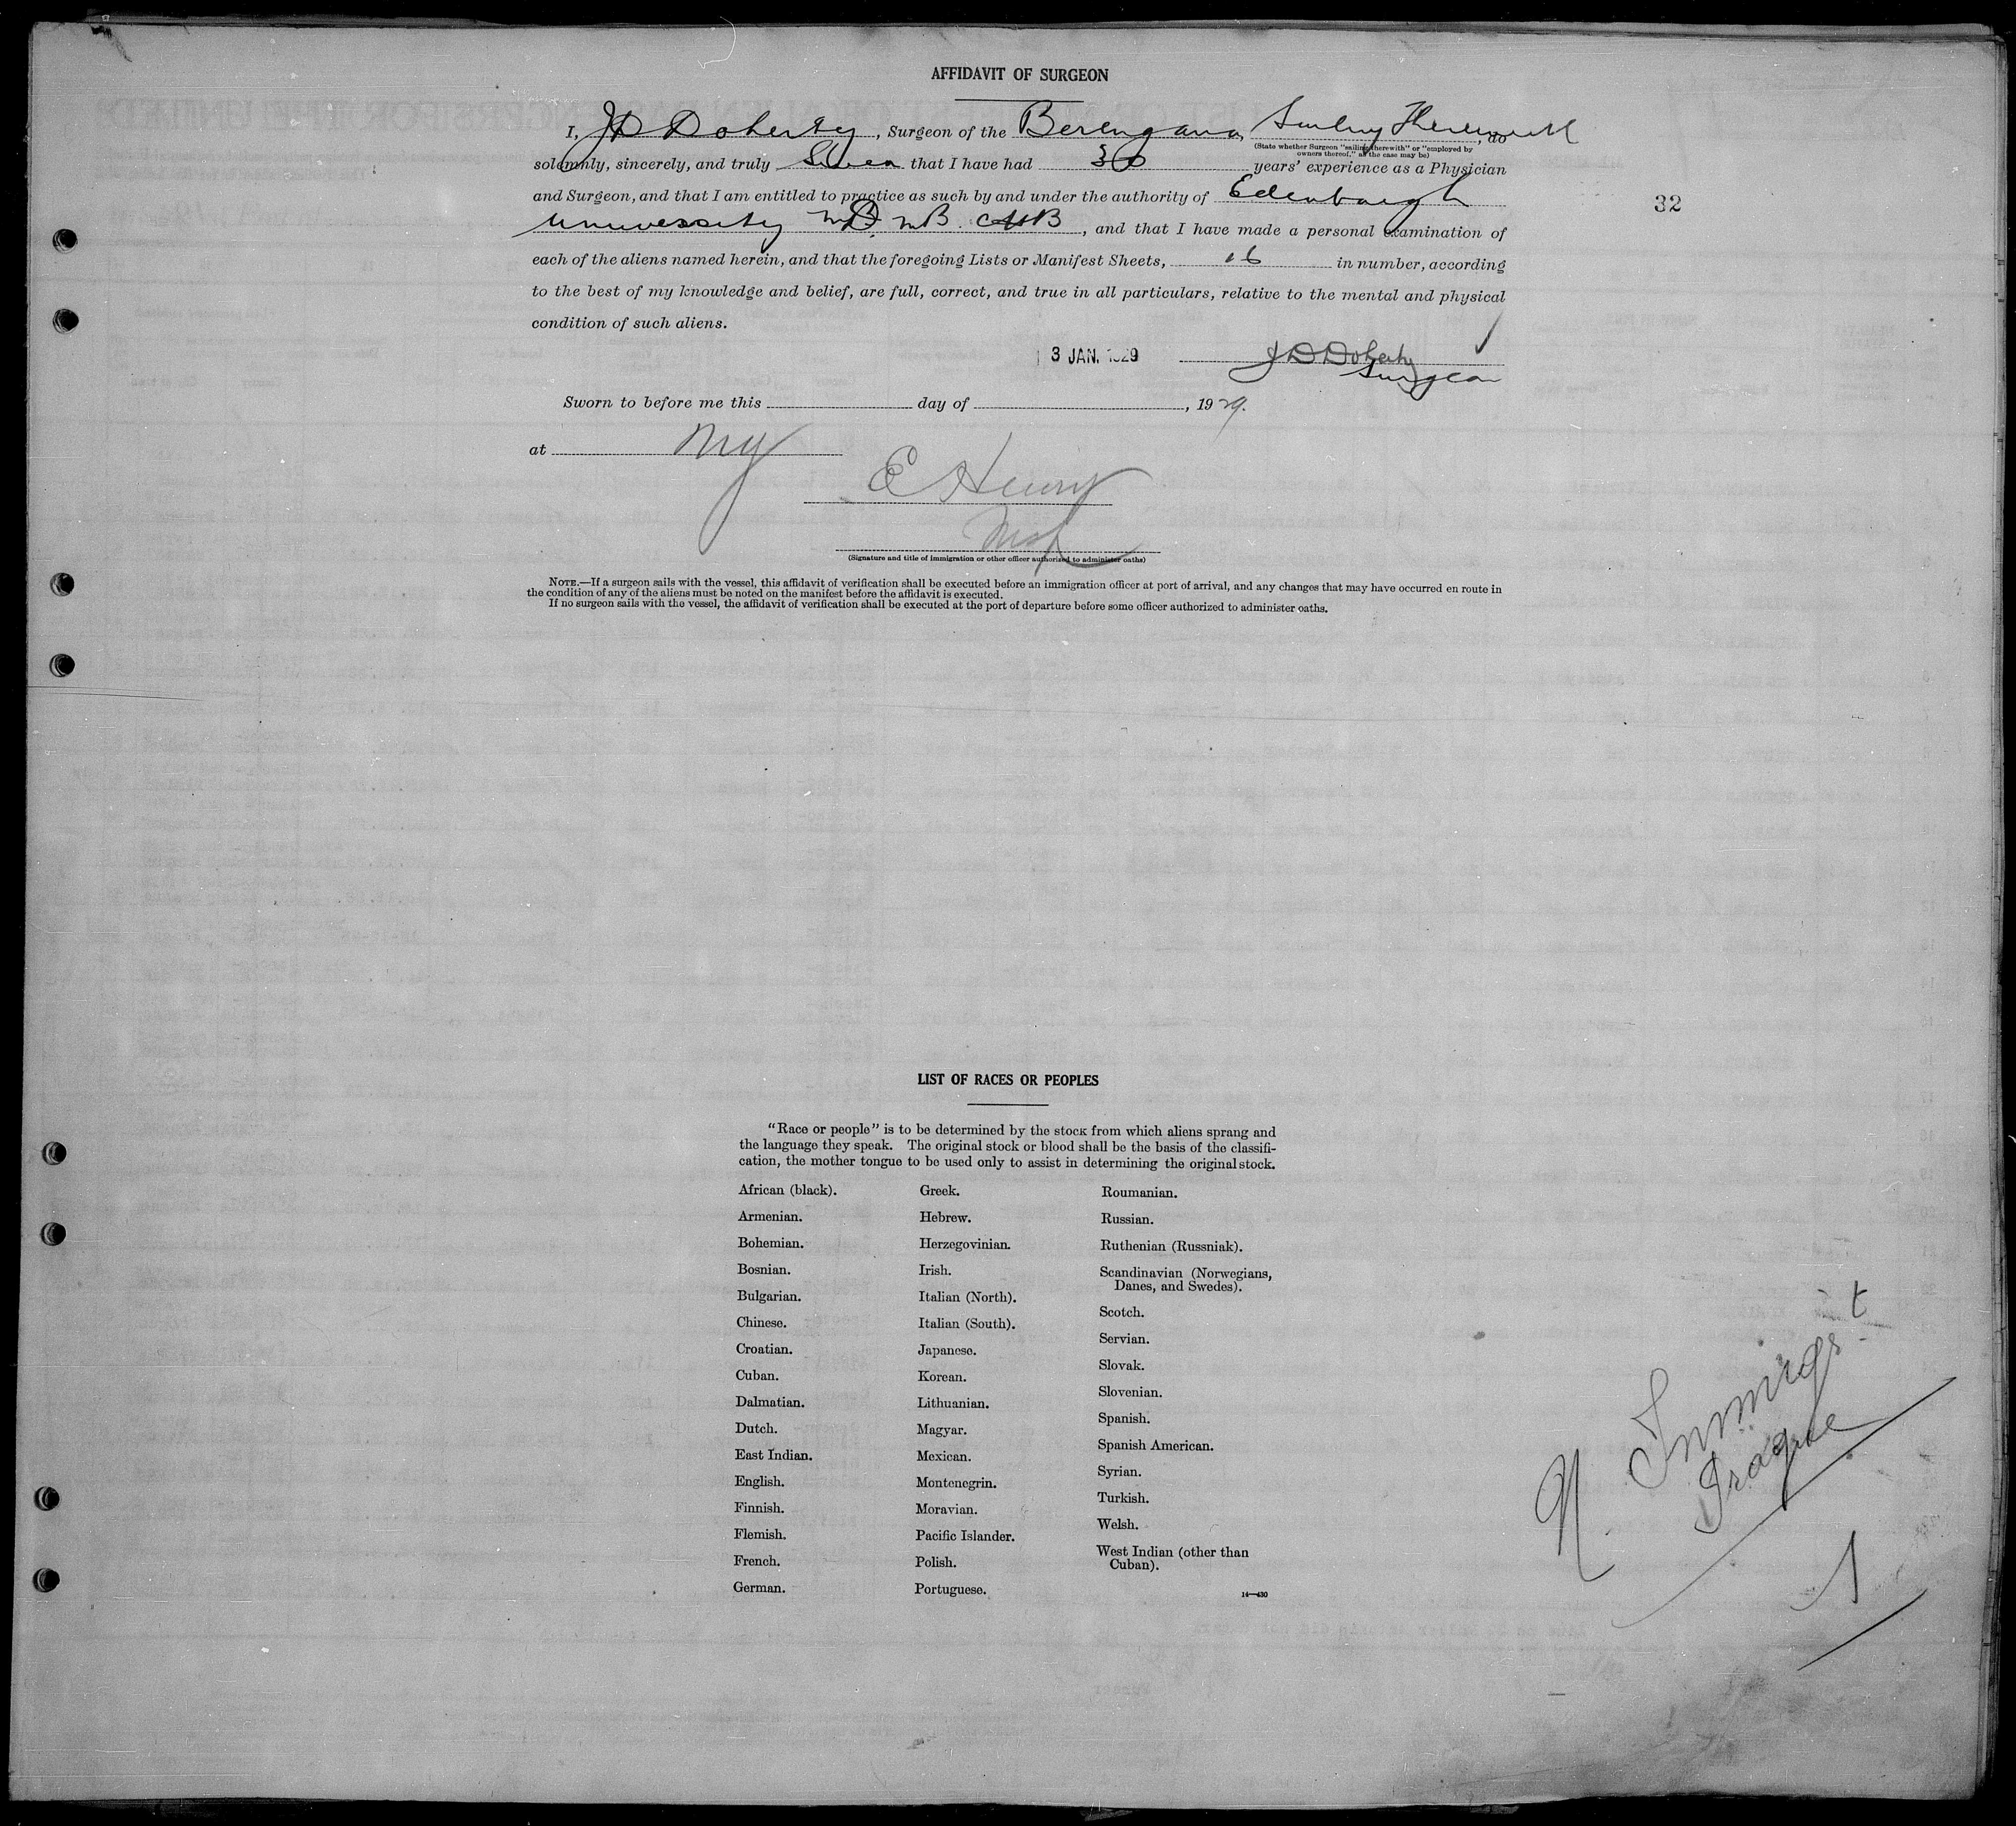 AFFIDAVIT OF SURGEON
I, JD Doherty, Surgeon of the Berengaria, Sailing Therewith, do
(State whether Surgeon "sailing therewith" or "employed by
owners thereof," as the case may be)
solemnly, sincerely, and truly Swear that I have had 30 years' experience as a Physician
and Surgeon, and that I am entitled to practice as such by and under the authority of Edenburgh
University MD. MB. CHB, and that I have made a personal examination of
32
each of the aliens named herein, and that the foregoing Lists or Manifest Sheets, 16 in number, according
to the best of my knowledge and belief, are full, correct, and true in all particulars, relative to the mental and physical
condition of such aliens.
3 JAN. 1929 JD Doherty
Surgeon
Sworn to before me this day of , 1929.
at NY
E Henry
Insp
(Signature and title of immigration or other officer authorized to administer oaths)
NOTE.—If a surgeon sails with the vessel, this affidavit of verification shall be executed before an immigration officer at port of arrival, and any changes that may have occurred en route in
the condition of any of the aliens must be noted on the manifest before the affidavit is executed.
If no surgeon sails with the vessel, the affidavit of verification shall be executed at the port of departure before some officer authorized to administer oaths.
LIST OF RACES OR PEOPLES
"Race or people" is to be determined by the stock from which aliens sprang and
the language they speak. The original stock or blood shall be the basis of the classifi-
cation, the mother tongue to be used only to assist in determining the original stock.
African (black).
Armenian.
Bohemian.
Bosnian.
Bulgarian.
Chinese.
Croatian.
Cuban.
Dalmatian.
Dutch.
East Indian.
English.
Finnish.
Flemish.
French.
German.
Greek.
Hebrew.
Herzegovinian.
Irish.
Italian (North).
Italian (South).
Japanese.
Korean.
Lithuanian.
Magyar.
Mexican.
Montenegrin.
Moravian.
Pacific Islander.
Polish.
Portuguese.
Roumanian.
Russian.
Ruthenian (Russniak).
Scandinavian (Norwegians,
Danes, and Swedes).
Scotch.
Servian.
Slovak.
Slovenian.
Spanish.
Spanish American.
Syrian.
Turkish.
Welsh.
West Indian (other than
Cuban).
14—430
Prague